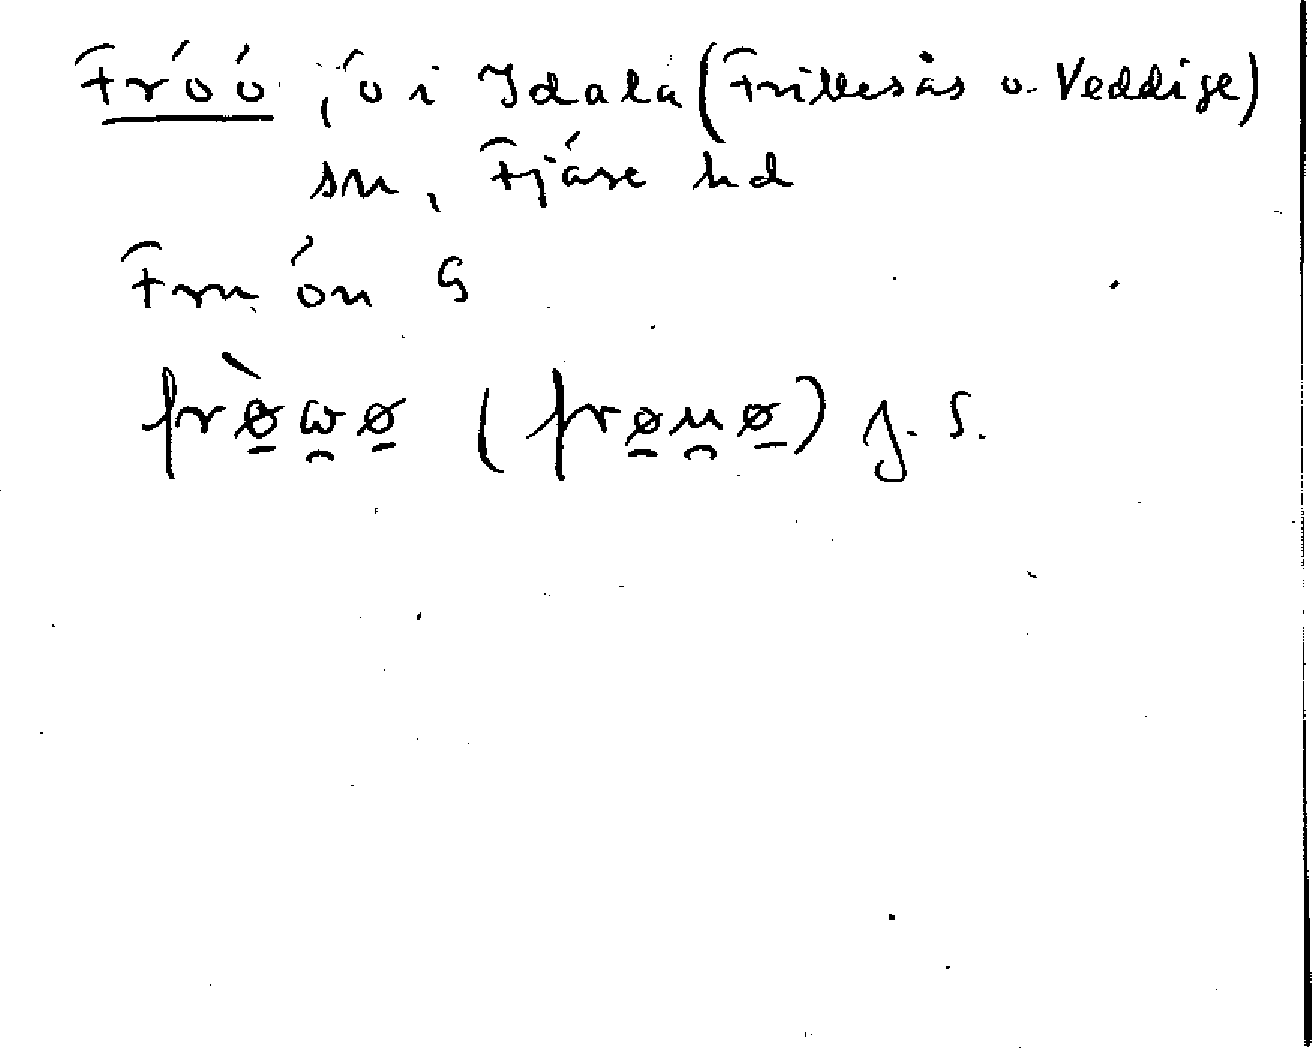 Fróó, ö i Idala (Frillesås o. Veddige)
sn, Fjäre hd
Fru ön G
frø̀ωø (frøuø) j. S.